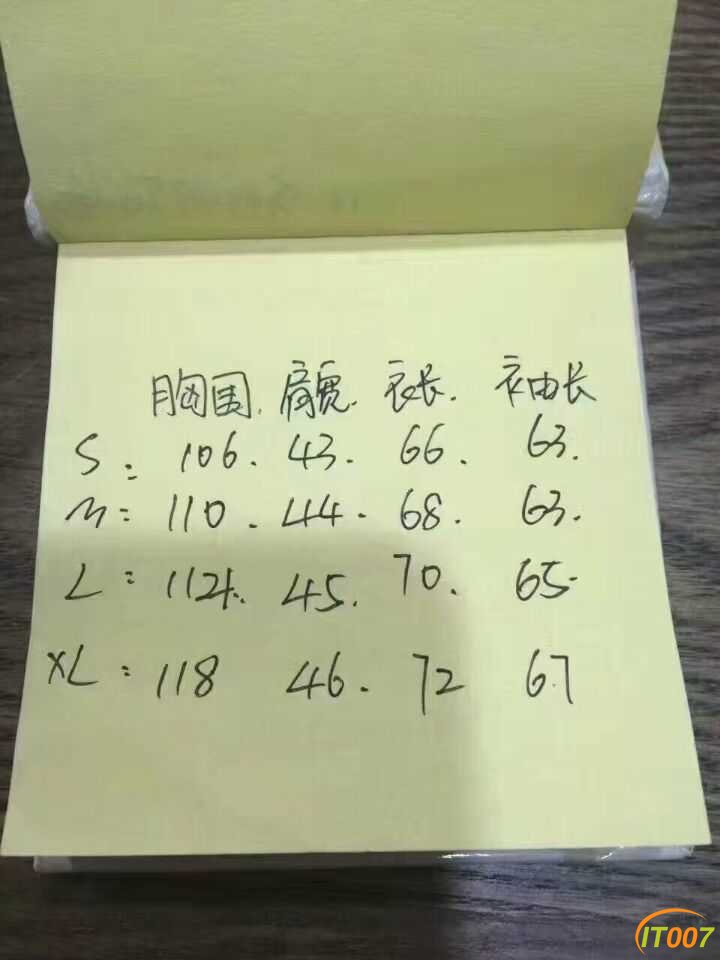 胸围. 肩宽. 衣长. 袖长
S: 106. 43. 66. 63.
M: 110. 44. 68. 63.
L: 114. 45. 70. 65.
XL: 118 46. 72 67
IT007